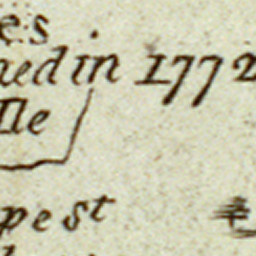 es
ned in 1772
lle
pest